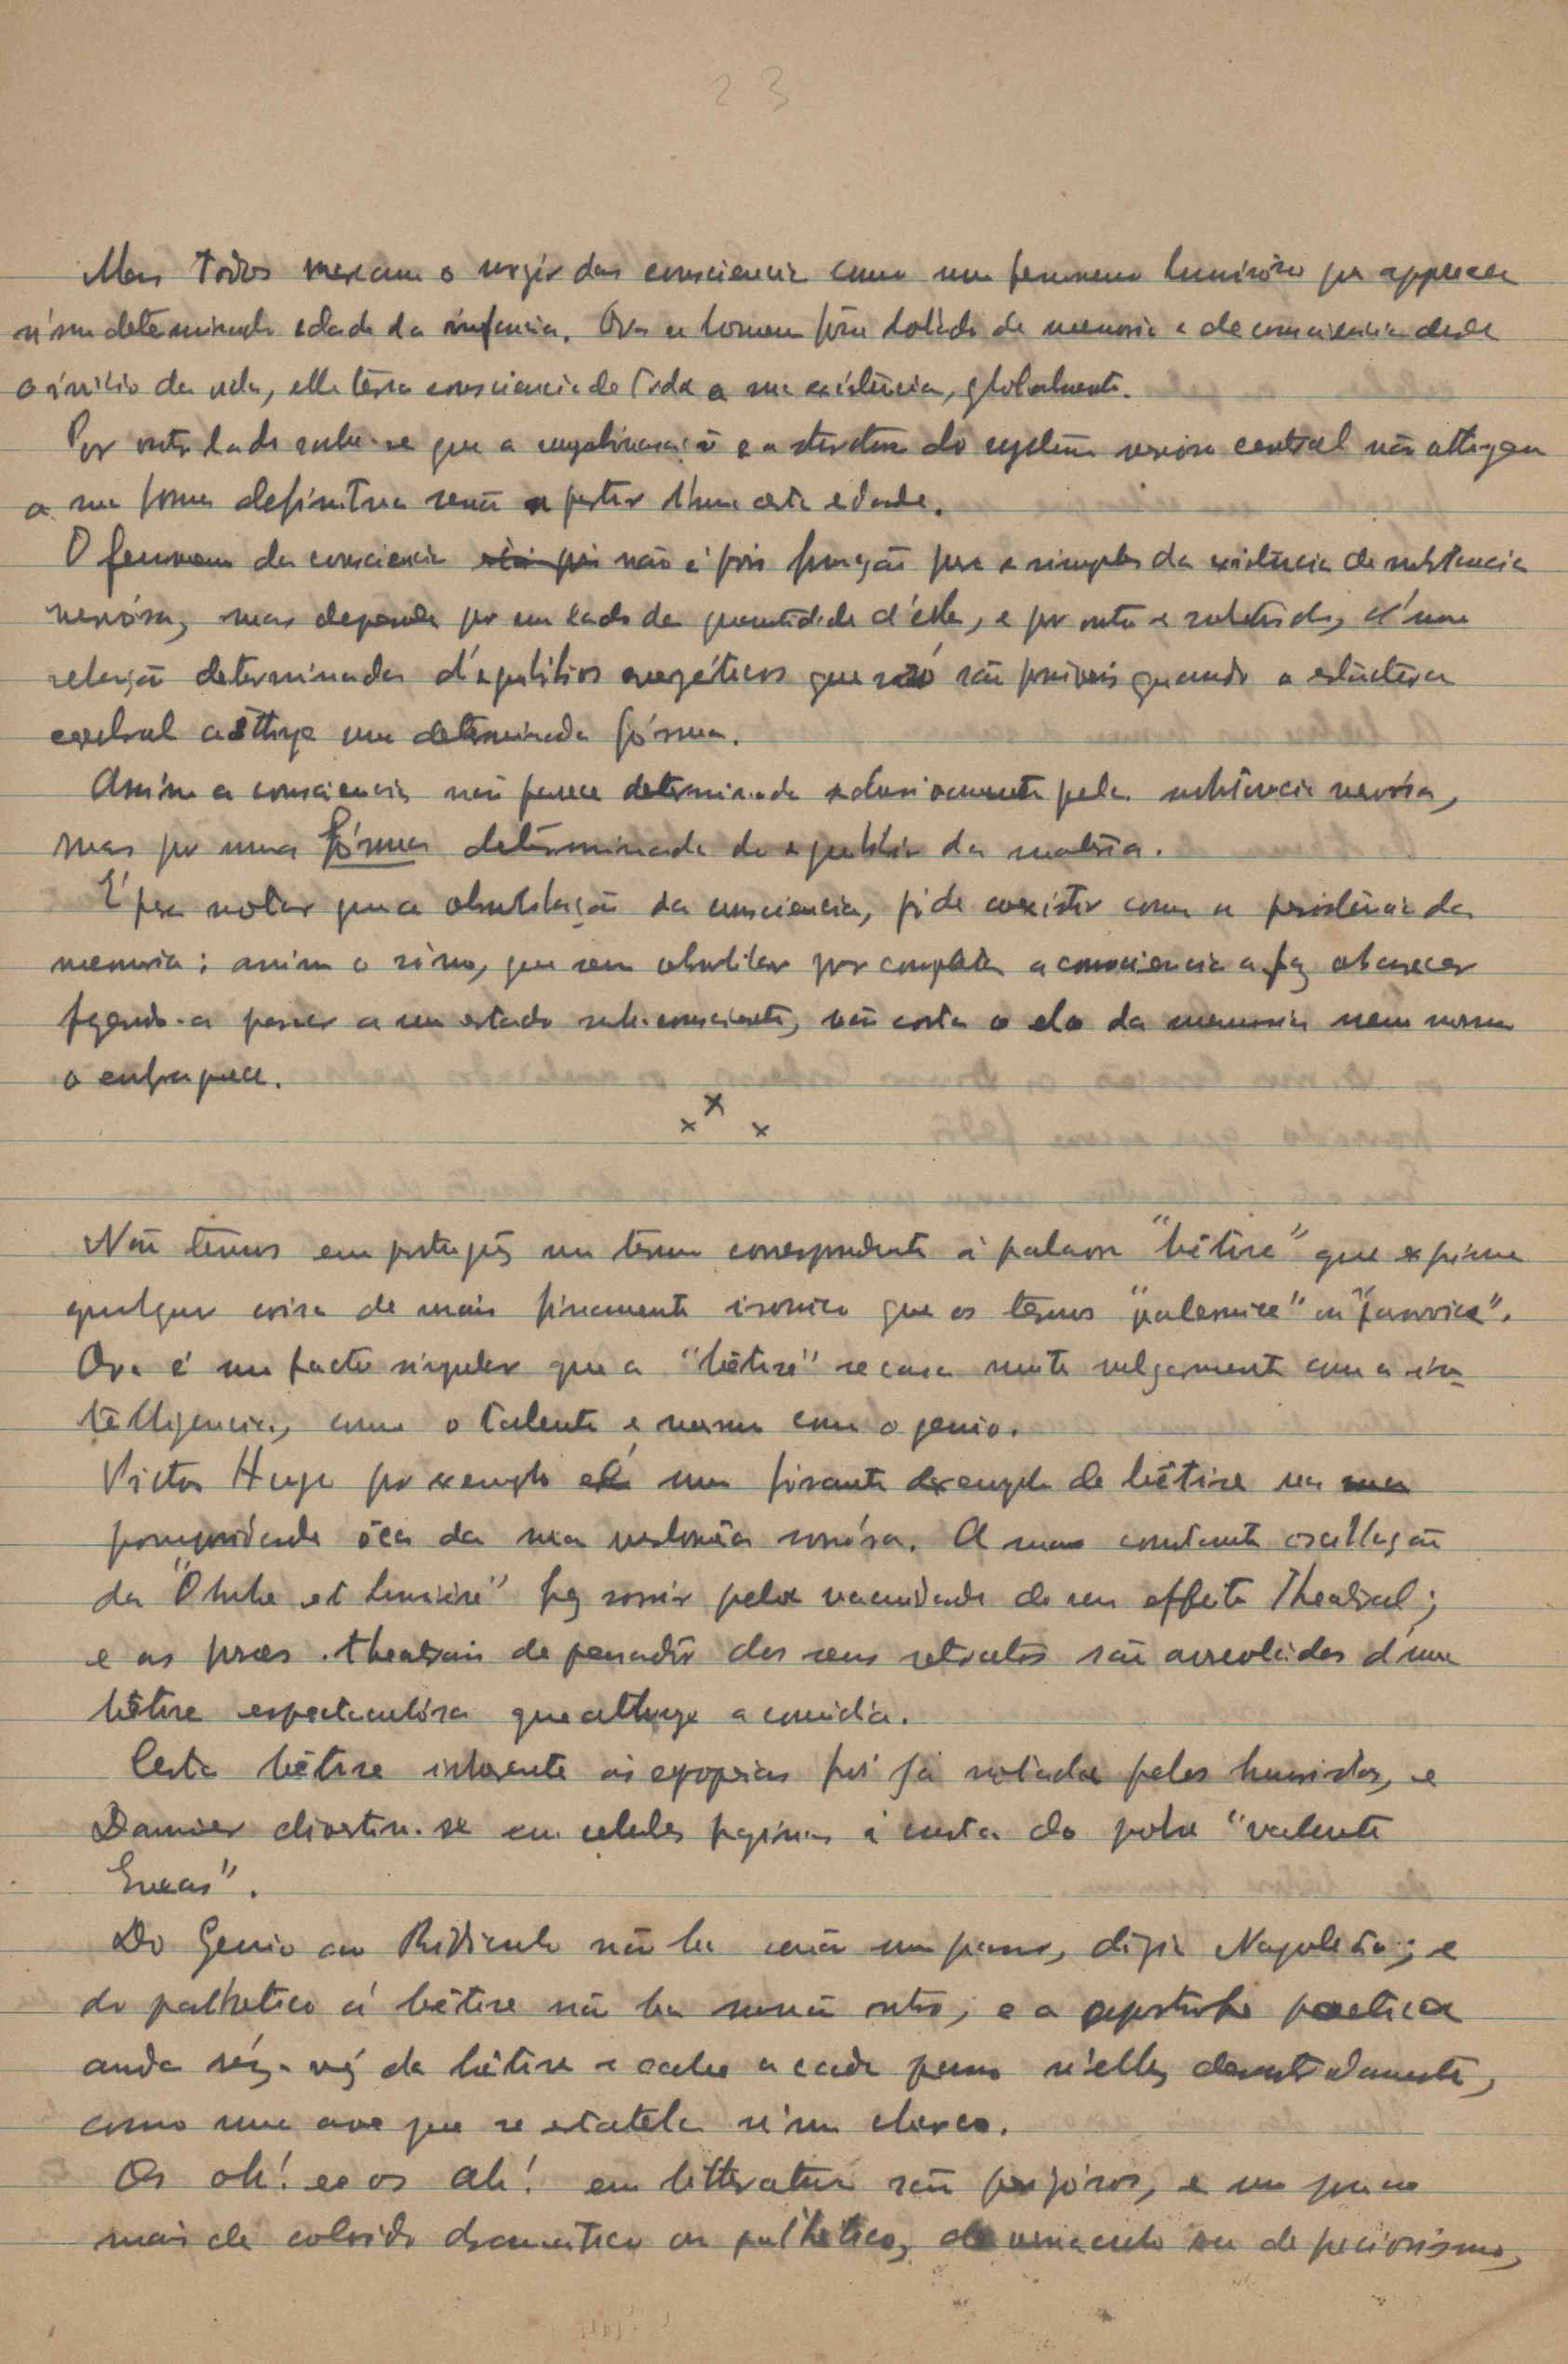 23
Mas todos marcam o surgir da consciencia como um fenomeno luminoso que apparece
n'uma determinada edade da infancia. Ora se o homem fôra dotado de memoria e de consciencia desde
o inicio da vida, elle teria consciencia de toda a sua existencia, globalmente.
Por outro lado sabe-se que a organisação e a structura do systema nervoso central não attingem
a sua forma definitiva senão a partir d'uma certa edade.
O fenomeno da consciencia não é pois funcção pura e simples da existencia de substancia
nervósa, mas depende por um lado da quantidade d'ella, e por outro e sobretudo, d'uma
relação determinada d'equilibrios energéticos que só são possiveis quando a estructura
cerebral attinge uma determinada fórma.
Assim a consciencia não parece determinada exclusivamente pela substancia nervósa,
mas por uma fórma determinada de equilibrio da materia.
É para notar que a obnubilação da consciencia, póde coexistir com a persistencia da
memoria: assim o sôno, que sem obnubilar por completo a consciencia a faz obscurecer
fazendo-a passar a um estado sub-consciente, não corta o elo da memoria nem mesmo
o enfraquece.
x x x
Não temos em portuguez um termo correspondente á palavra "bêtise" que exprime
qualquer coisa de mais finamente ironico que os termos "palermice" ou "parvoice".
Ora é um facto singular que a "bêtise" se casa muito vulgarmente com a in-
telligencia, com o talento e mesmo com o genio.
Victor Hugo por exemplo é um frisante exemplo de bêtise na
pomposidade ôca da sua verborreia sonóra. A sua constante oscillação
da "Ombre et lumière" faz sorrir pela vacuidade do seu effeito theatral;
e as poses theatrais de pensador dos seus retratos são aureoladas d'uma
bêtise espectaculósa que attinge a comédia.
Certa bêtise inherente ás epopeias foi já notada pelos humoristas, e
Daumier divertiu-se em celebres paginas á custa do pobre "valente
Eneas".
Do Genio ao Ridiculo não ha senão um passo, dizia Napoleão; e
do pathetico á bêtise não ha senão outro, e a apostrophe poetica
anda réz-véz da bêtise e cahe a cada passo n'ella desastradamente,
como uma ave que se estatela n'um charco.
Os oh! e os ah! em litteratura são perigósos, e um pouco
mais de colorido dramatico ou pathetico, de vernaculo ou de preciosismo,